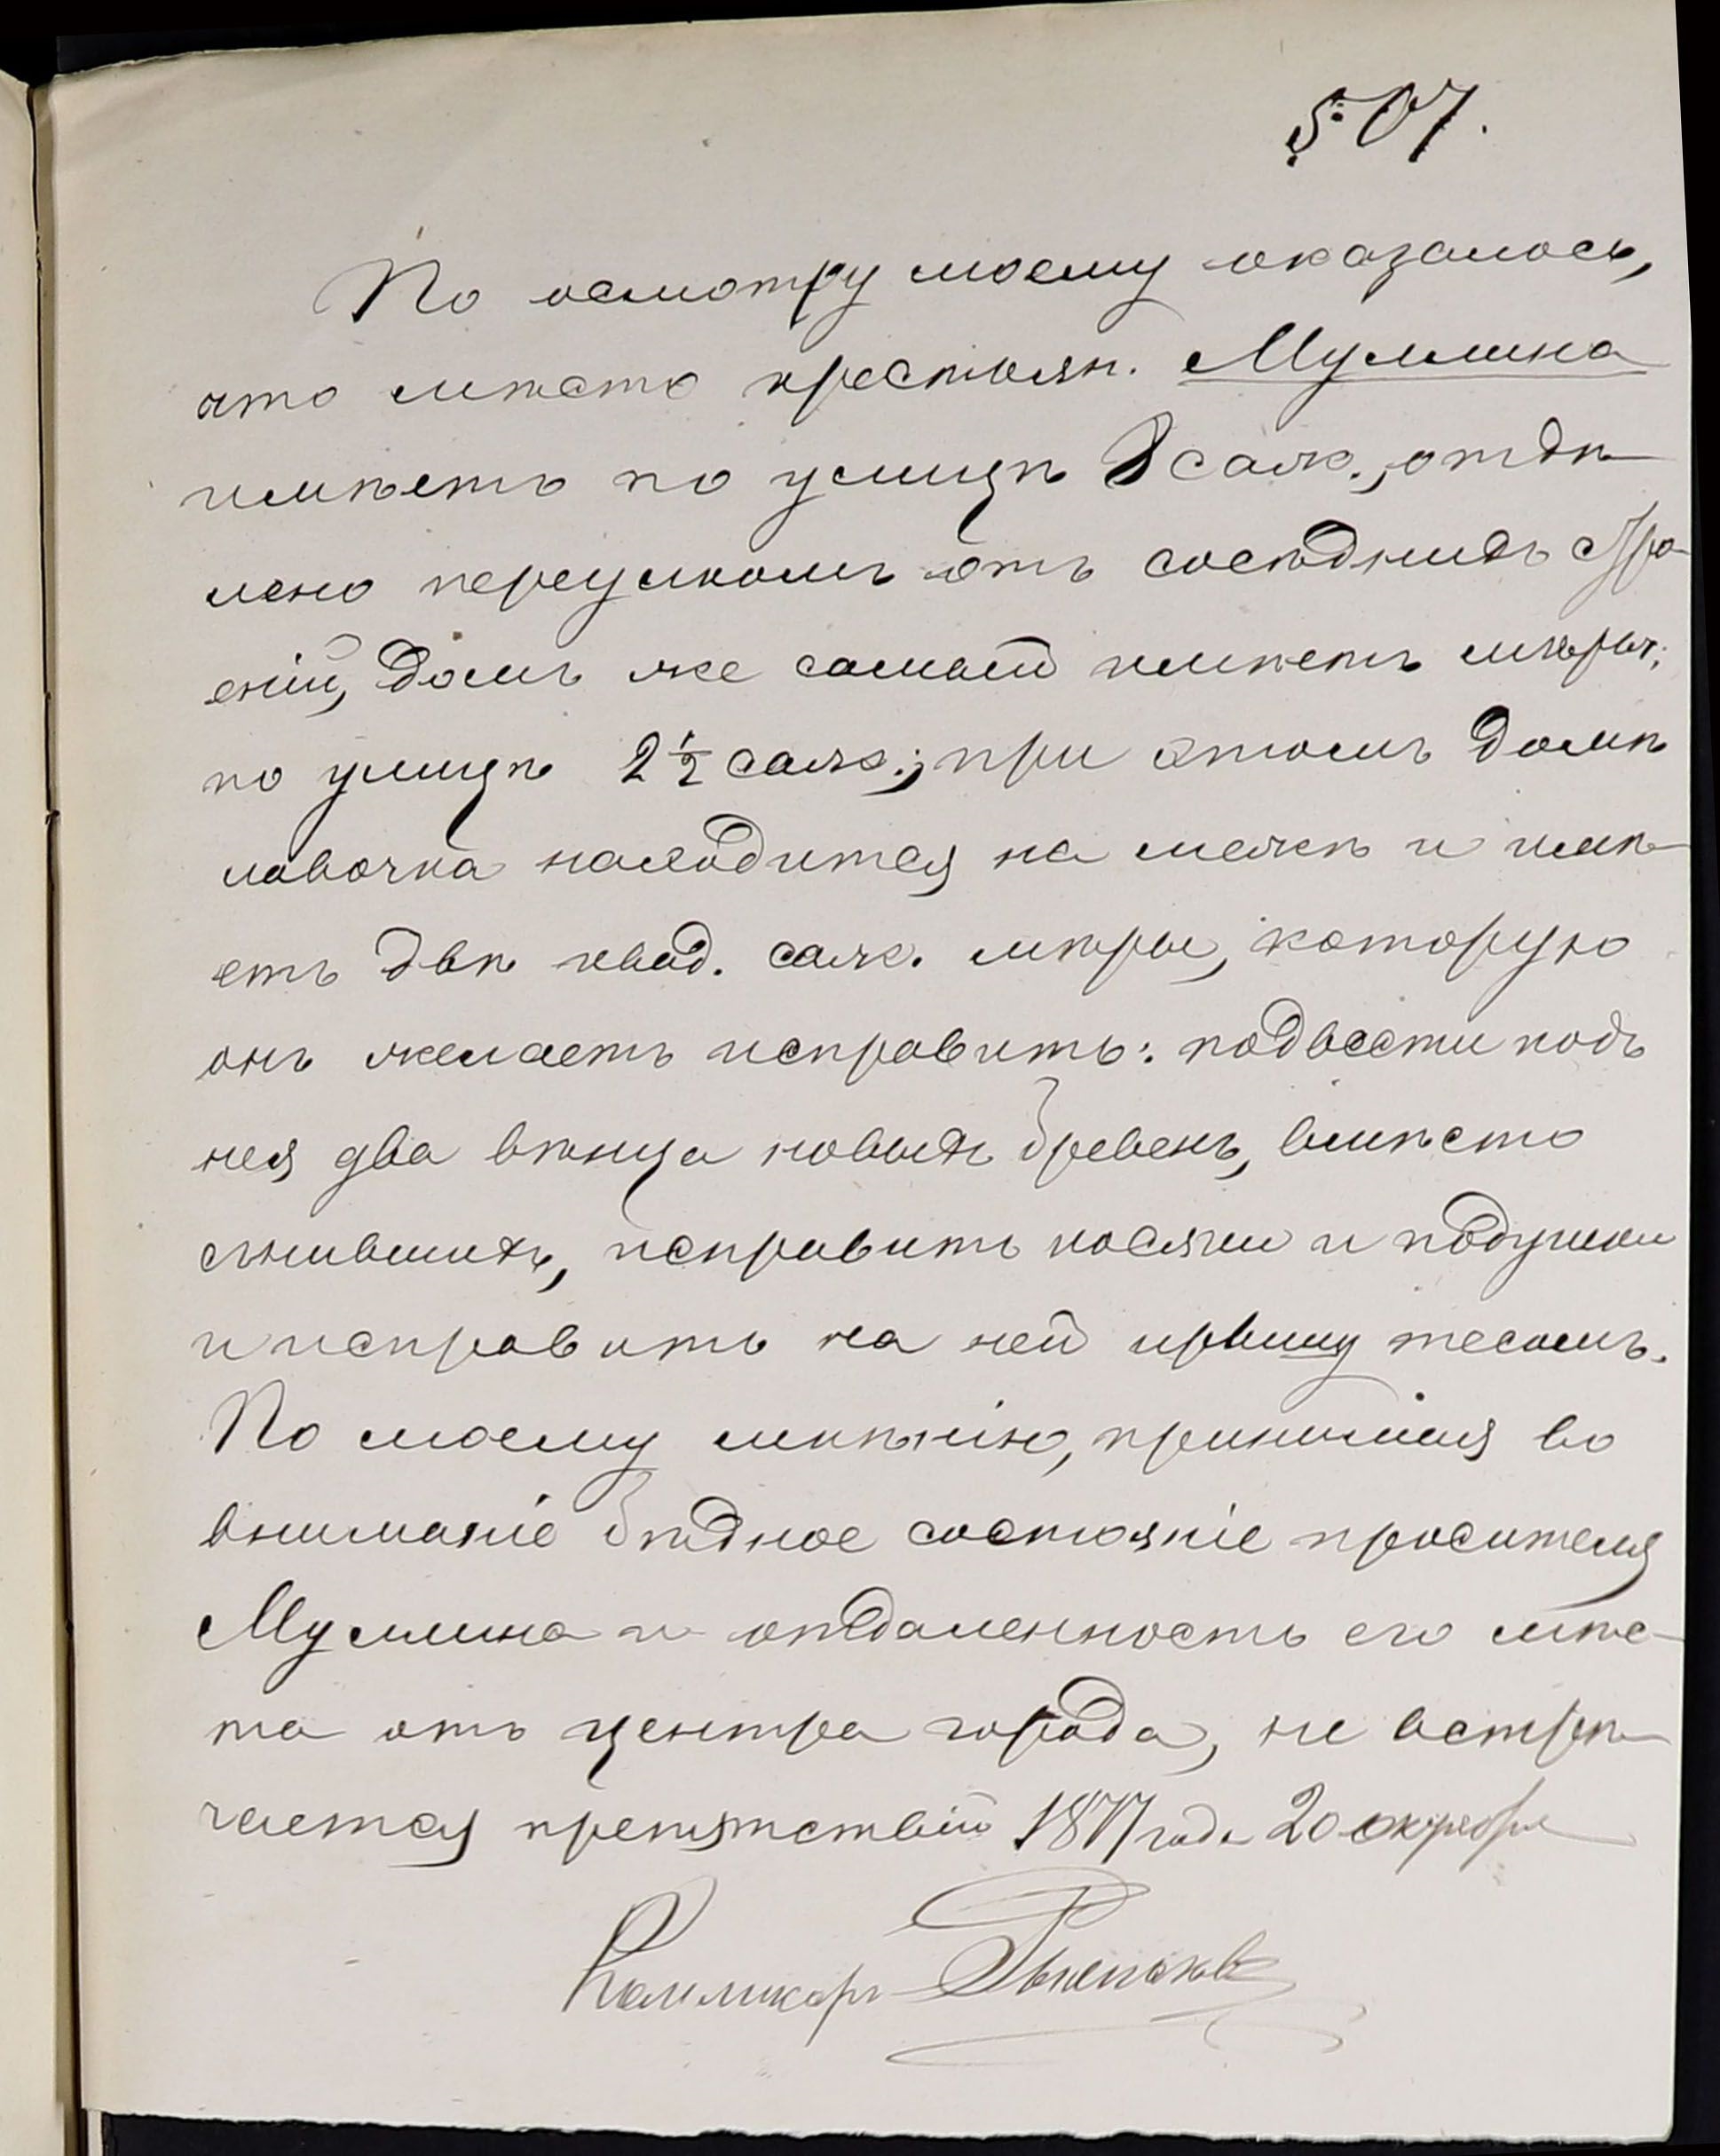 507.
По осмотру моему оказалось,
что мѣсто крестьян. Муллина
имѣетъ по улицѣ 8 саж., отдѣ-
лено переулкомъ отъ сосѣднихъ стро-
еній, домъ же самый имѣетъ мѣры:
по улицѣ 2 1/2 саж.; при этомъ домѣ
лавочка находится на межѣ и имѣ-
етъ двѣ квад. саж. мѣры, которую
онъ желаетъ исправить: подвести подъ
нея два вѣнца новыхъ бревенъ, вмѣсто
сгнившихъ, исправить косяки и подушки
и исправить на ней крышу тесомъ.
По моему мнѣнію, принимая во
вниманіе бѣдное состояніе просителя
Муллина и отдаленность его мѣс-
та отъ центра города, не встрѣ-
чается препятствій 1877 года 20 октября